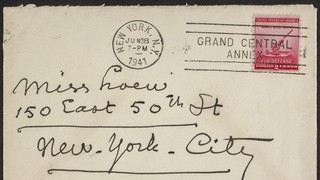 NEW YORK, N.Y.
JUN 28
7-PM
1941
GRAND CENTRAL
ANNEX
FOR DEFENSE
Miss Loew
150 East 50th St
New-York-City